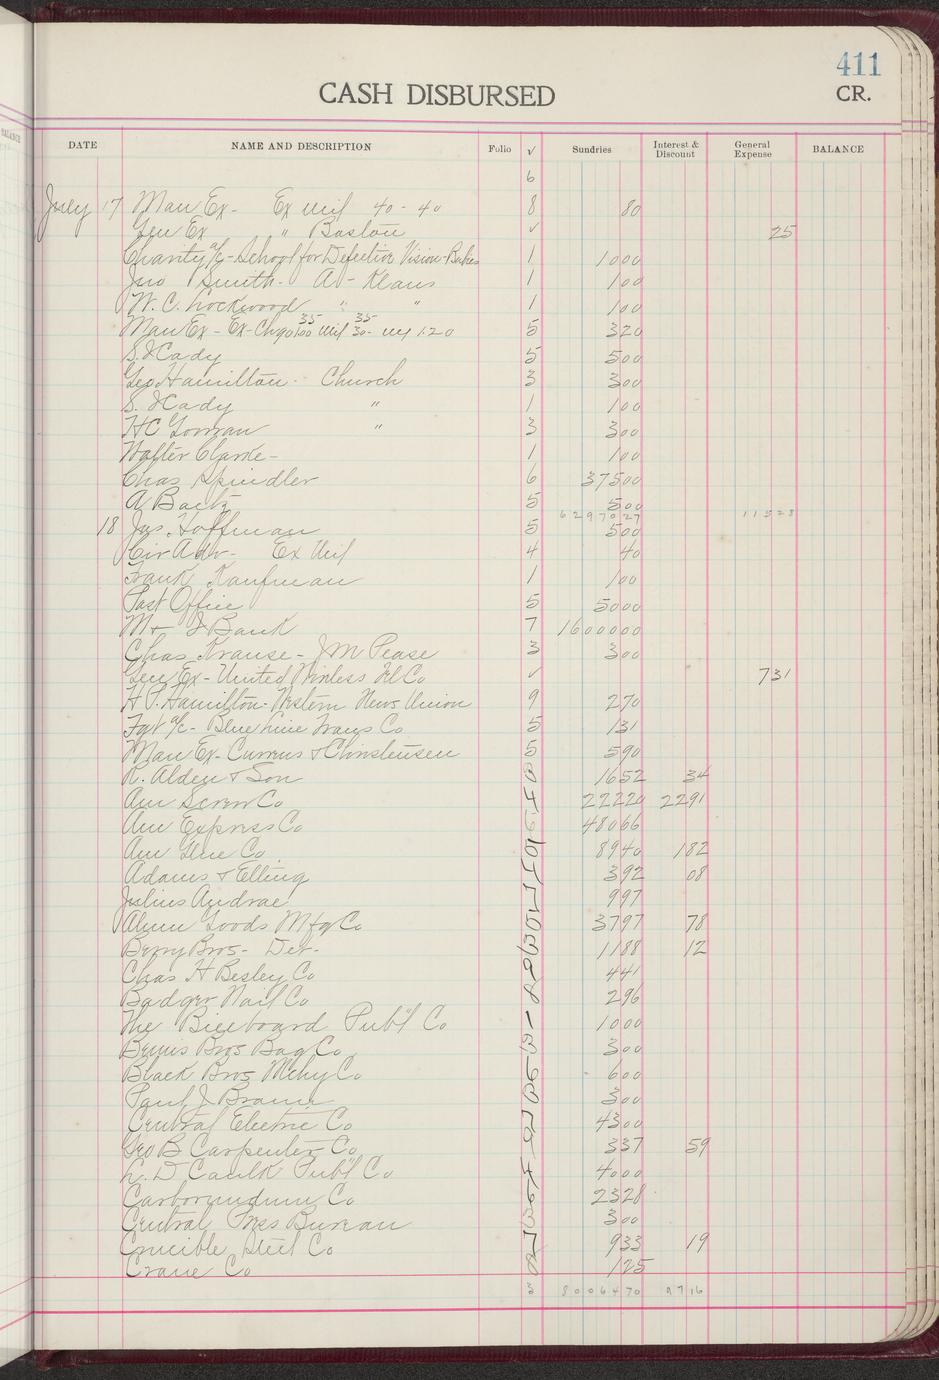 411
CASH DISBURSED CR.
DATE NAME AND DESCRIPTION Folio √ Sundries Interest & Discount General Expense BALANCE
6
July 17 Man Ex- Ex Mil 40-40 8 80
Gen Ex " Boston √ 25
Charity a/c- School for Defective Vision- 1 1000
Jno Smith- A - Klaus 1 100
W. C. Lockwood " " 1 100
Man Ex- Ex- Chgo 35 100 Mil 35 30- 120 5 320
S. J Cady 5 500
Geo Hamilton- Church 3 300
S. J Cady " 1 100
HC Gorman " 3 300
Walter Clarke- 1 100
Chas Spindler 6 37500
A Bartz 5 500
6297027 11528
18 Jas. Hoffman 5 500
Cir Adv- Ex Mil 4 40
Frank Kaufman 1 100
Post Office 5 5000
M + I Bank 7 1600000
Chas Krause- JM Pease 3 300
Gen Ex- United Wireless Tel Co √ 731
H P. Hamilton- Western News Union 9 270
Fgt a/c- Blue Line Trans Co 5 131
Man Ex- & Christensen 5 590
R. Alden & Son 1652 34
Am Screw Co 22220 2291
Am Express Co 48066
Am Glue Co 8940 182
Adams & Elting 392 08
Julius Andrae 997
Alum Goods Mfg Co 3797 78
Berry Bros- Det- 1188 12
Chas H Besley Co 441
Badger Nail Co 296
The Billboard Pub'l Co 1000
Bemis Bros Bag Co 300
Black Bros Mchy Co 600
Paul J 300
Central Electric Co 4300
Geo B Carpenter Co 337 59
L. D Caulk Pub'l Co 4000
Carborundum Co 2328
Central Press Bureau 300
Crucible Steel Co 933 19
Crane Co 125
3 8006470 9716